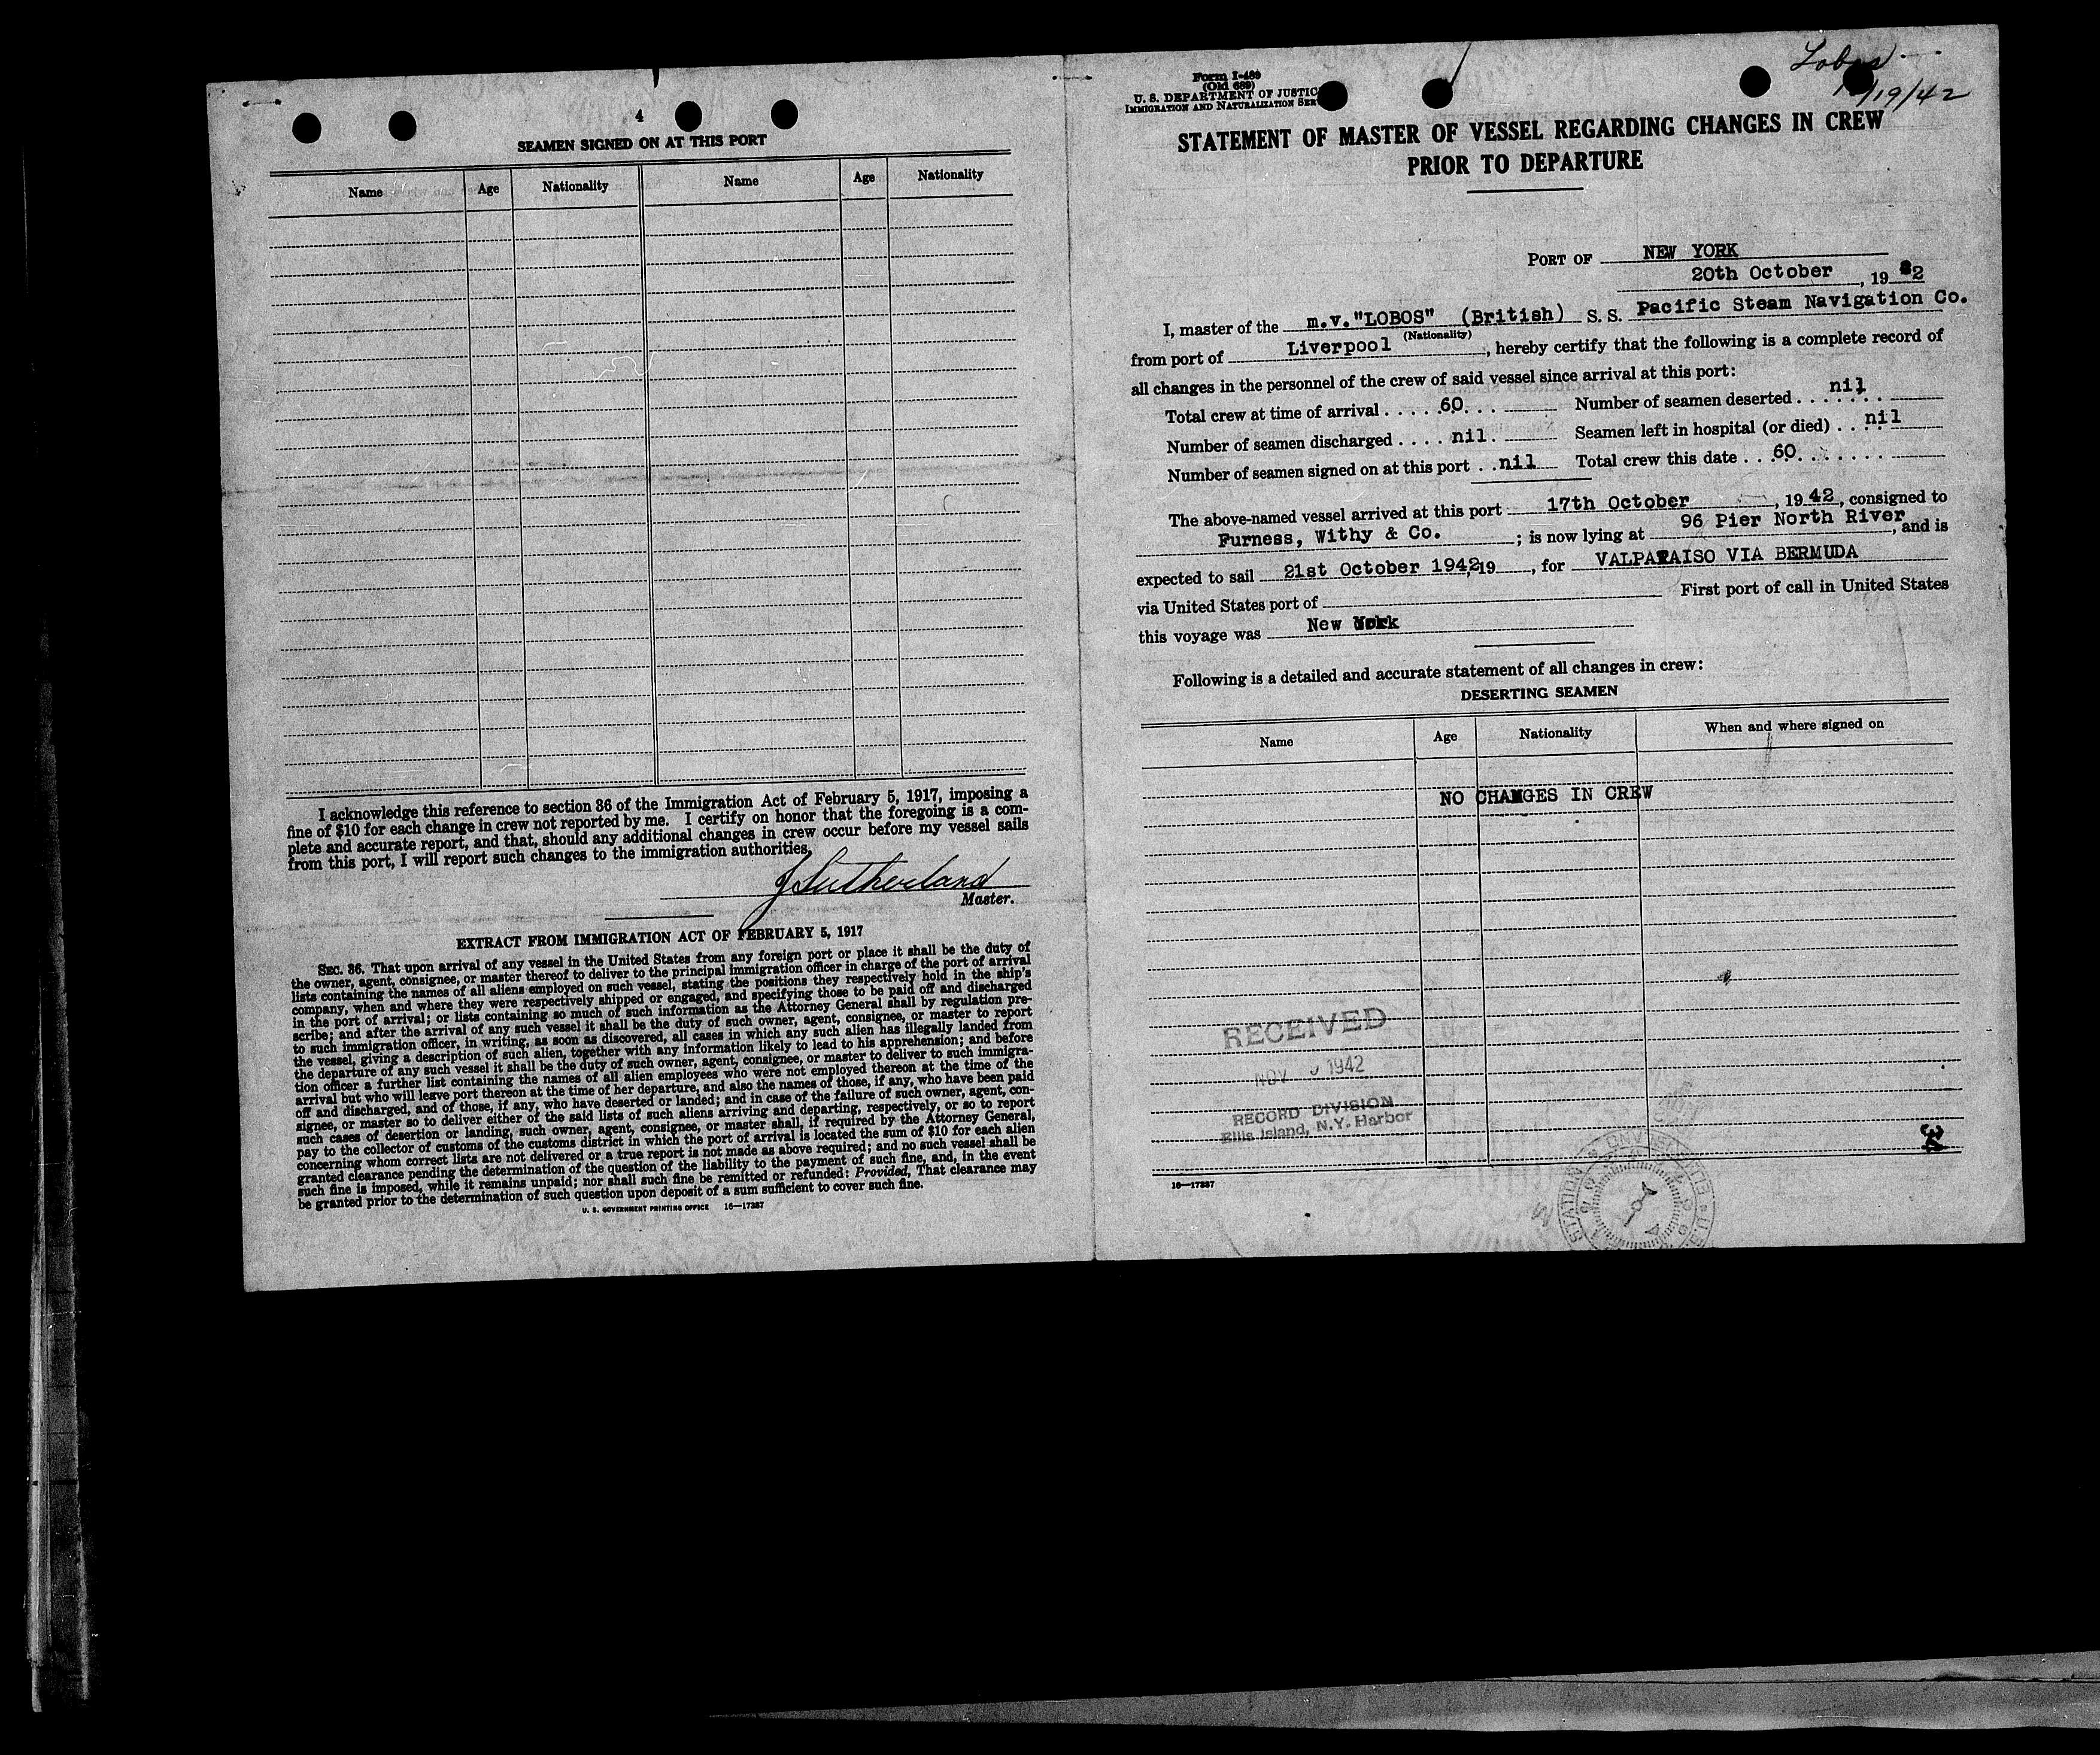 4
SEAMEN SIGNED ON AT THIS PORT
Name Age Nationality Name Age Nationality
I acknowledge this reference to section 36 of the Immigration Act of February 5, 1917, imposing a
fine of $10 for each change in crew not reported by me. I certify on honor that the foregoing is a com-
plete and accurate report, and that, should any additional changes in crew occur before my vessel sails
from this port, I will report such changes to the immigration authorities.
J Sutherland
Master.
EXTRACT FROM IMMIGRATION ACT OF FEBRUARY 5, 1917
SEC. 36. That upon arrival of any vessel in the United States from any foreign port or place it shall be the duty of
the owner, agent, consignee, or master thereof to deliver to the principal immigration officer in charge of the port of arrival
lists containing the names of all aliens employed on such vessel, stating the positions they respectively hold in the ship's
company, when and where they were respectively shipped or engaged, and specifying those to be paid off and discharged
in the port of arrival; or lists containing so much of such information as the Attorney General shall by regulation pre-
scribe; and after the arrival of any such vessel it shall be the duty of such owner, agent, consignee, or master to report
to such immigration officer, in writing, as soon as discovered, all cases in which any such alien has illegally landed from
the vessel, giving a description of such alien, together with any information likely to lead to his apprehension; and before
the departure of any such vessel it shall be the duty of such owner, agent, consignee, or master to deliver to such immigra-
tion officer a further list containing the names of all alien employees who were not employed thereon at the time of the
arrival but who will leave port thereon at the time of her departure, and also the names of those, if any, who have been paid
off and discharged, and of those, if any, who have deserted or landed; and in case of the failure of such owner, agent, con-
signee, or master so to deliver either of the said lists of such aliens arriving and departing, respectively, or so to report
such cases of desertion or landing, such owner, agent, consignee, or master shall, if required by the Attorney General,
pay to the collector of customs of the customs district in which the port of arrival is located the sum of $10 for each alien
concerning whom correct lists are not delivered or a true report is not made as above required; and no such vessel shall be
granted clearance pending the determination of the question of the liability to the payment of such fine, and, in the event
such fine is imposed, while it remains unpaid; nor shall such fine be remitted or refunded: Provided, That clearance may
be granted prior to the determination of such question upon deposit of a sum sufficient to cover such fine.
U. S. GOVERNMENT PRINTING OFFICE 16—17387
Form I-489
(Old 689)
U. S. DEPARTMENT OF JUSTIC
IMMIGRATION AND NATURALIZATION SER
Lobos
/19/42
STATEMENT OF MASTER OF VESSEL REGARDING CHANGES IN CREW
PRIOR TO DEPARTURE
PORT OF NEW YORK
20th October, 19 2
I, master of the m.v."LOBOS" (British) S. S. Pacific Steam Navigation Co.
(Nationality)
from port of Liverpool, hereby certify that the following is a complete record of
all changes in the personnel of the crew of said vessel since arrival at this port:
Total crew at time of arrival . . . . . 60 . . . Number of seamen deserted . . . . . . . nil
Number of seamen discharged . . . . nil . Seamen left in hospital (or died) . . nil
Number of seamen signed on at this port . . nil Total crew this date . . . 60 . . . . . . .
The above-named vessel arrived at this port 17th October, 19 42, consigned to
Furness, Withy & Co. ; is now lying at 96 Pier North River, and is
expected to sail 21st October 1942, 19 , for VALPARAISO VIA BERMUDA
via United States port of First port of call in United States
this voyage was New York
Following is a detailed and accurate statement of all changes in crew:
DESERTING SEAMEN
Name Age Nationality When and where signed on
NO CHANGES IN CREW
RECEIVED
NOV 1942
RECORD DIVISION
Ellis Island, N.Y. Harbor
16—17387
STATION